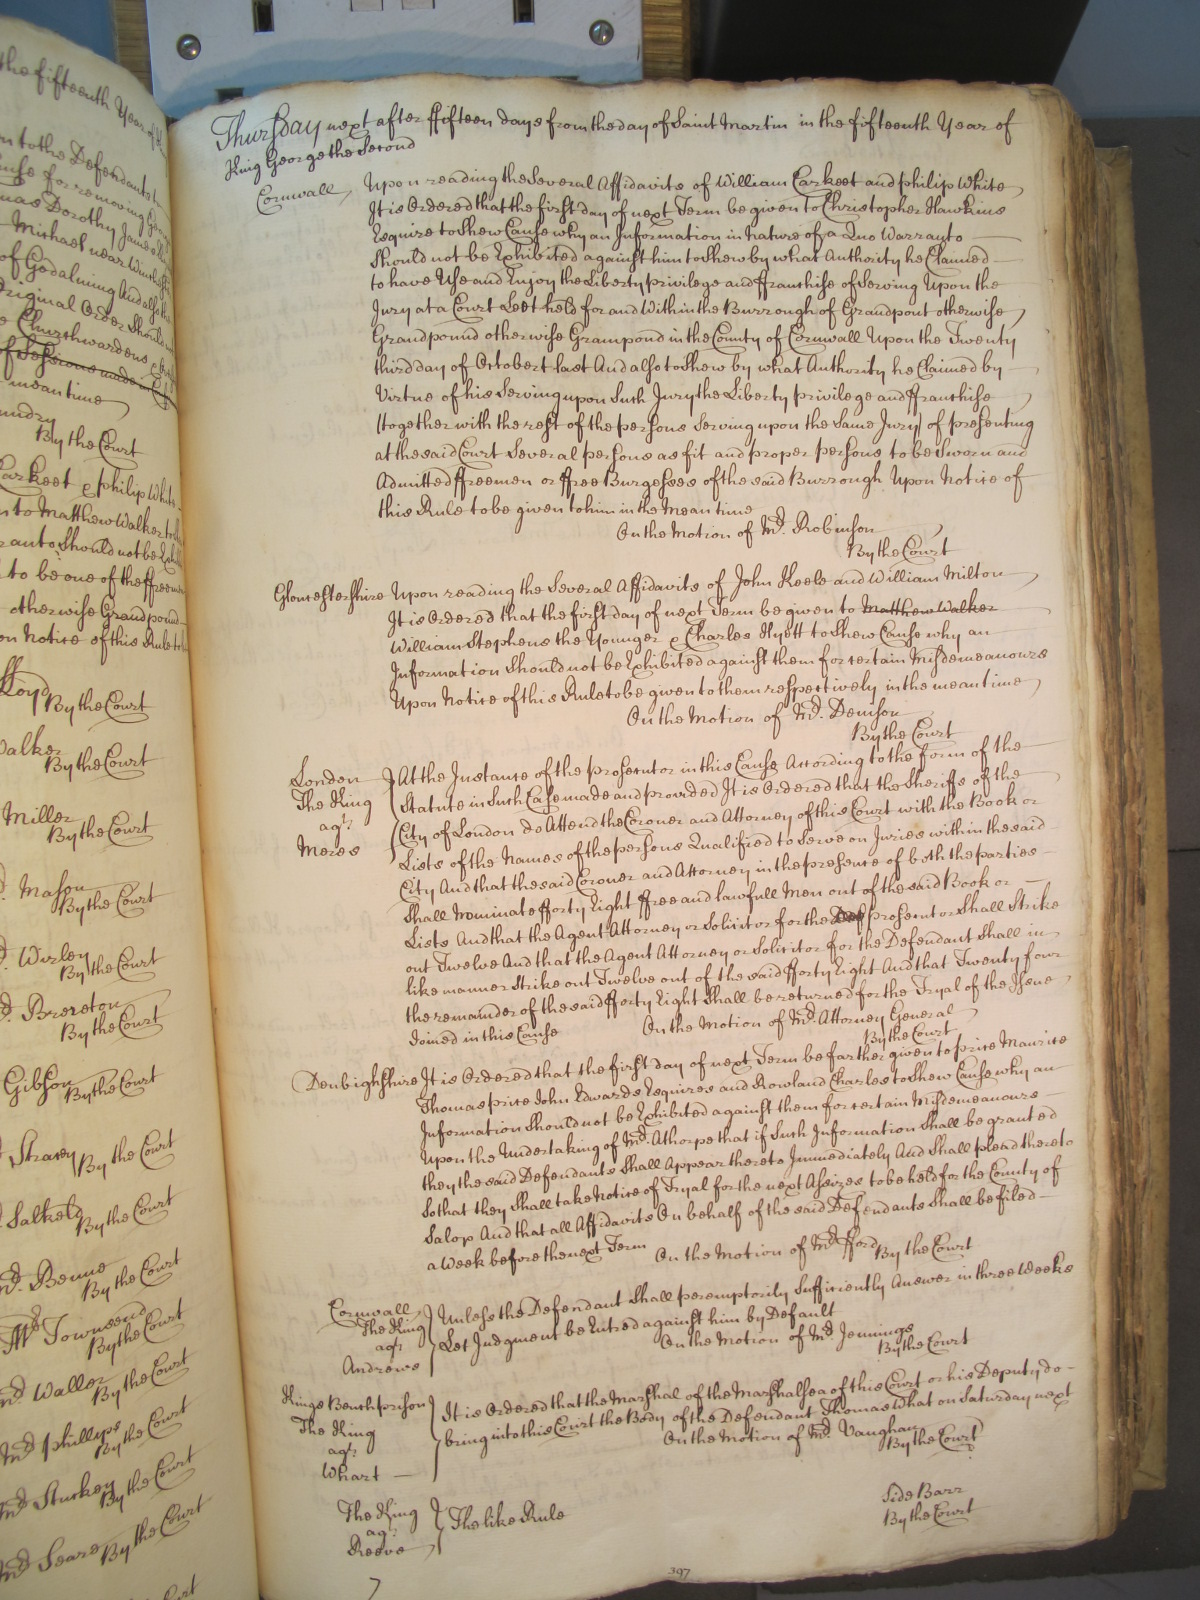 the fifteenth Year of
n to the Defendants
Cause for removing
mas Dorothy James
Michael near
of Godalming And also
Original Order Should
Churchwardens &
of Sessions made
meantime
By the Court
Carkeet & philip White
to Matthew Walker
Should not be
to be one of the ffreemen
otherwise Grandpound
on Notice of this Rule to
Lloyd
By the Court
Walker
By the Court
Miller
By the Court
Mason
By the Court
Worley
By the Court
Mr. Brereton
By the Court
Gibson
By the Court
Stracey By the Court
Salkeld
By the Court
Mr. Benne
By the Court
Townsend
By the Court
Mr. Waller
By the Court
Mr. phillips
By the Court
Mr. Stuckey
By the Court
Mr. Seare
By the Court
Court
Thursday next after ffifteen days from the day of Saint Martin in the fifteenth Year of
King George the Second
Cornwall Upon reading the Several Affidavits of William Carkeet and philip White
It is Ordered that the first day of next Term be given to Christopher Hawkins
Esquire to Shew Cause why an Information in nature of a Quo Warranto
Should not be Exhibited against him to Shew by what Authority he Claimed
to have Use and Enjoy the Liberty privilege and ffranchise of Serving Upon the
Jury at a Court Leet held for and Within the Burrough of Grandpont otherwise
Grandpound otherwise Grampond in the County of Cornwall Upon the Twenty
third day of October last And also to Shew by what Authority he Claimed by
Virtue of his Serving upon Such Jury the Liberty privilege and ffranchise
(together with the rest of the persons Serving upon the Same Jury) of presenting
at the said Court Several persons as fit and proper persons to be Sworn and
Admitted ffreemen or ffree Burgesses of the said Burrough Upon Notice of
this Rule to be given to him in the Mean time
On the Motion of Mr. Robinson
By the Court
Gloucestershire Upon reading the Several Affidavits of John Keele and William Milton
It is Ordered that the first day of next Term be given to Matthew Walker
William Stephens the Younger & Charles Hyett to Shew Cause why an
Information Should not be Exhibited against them for certain Misdemeanours
Upon Notice of this Rule to be given to them respectively in the mean time
On the Motion of Mr. Denison
By the Court
London At the Instance of the prosecutor in this Cause According to the form of the
The King Statute in Such Case made and provided It is Ordered that the Sheriffs of the
agt. City of London do Attend the Coroner and Attorney of this Court with the Book or
Meres Lists of the Names of the persons Qualified to Serve on Juries within the said
City And that the said Coroner and Attorney in the presence of both the parties
Shall Nominate fforty Eight ffree and lawfull Men out of the said Book or
Lists And that the Agent Attorney or Solicitor for the Def prosecutor Shall Strike
out Twelve And that the Agent Attorney or Solicitor for the Defendant Shall in
like manner Strike out Twelve out of the said fforty Eight And that Twenty four
the remainder of the said fforty Eight Shall be returned for the Tryal of the Issue
Joined in this Cause On the Motion of Mr. Attorney General
By the Court
Denbighshire It is Ordered that the first day of next Term be farther given to price Maurice
Thomas price John Edwards Esquires and Rowland Charles to Shew Cause why an
Information Should not be Exhibited against them for certain Misdemeanours
Upon the Undertaking of Mr. Athorpe that if Such Information Shall be granted
they the said Defendants Shall Appear thereto Immediately And Shall plead thereto
So that they Shall take Notice of Tryal for the next Assizes to be held for the County of
Salop And that all Affidavits On behalf of the said Defendants Shall be filed
a Week before the next Term On the Motion of Mr. fford
By the Court
Cornwall Unless the Defendant Shall peremptorily Sufficiently Answer in three Weeks
The King Let Judgment be Entred against him by Default
agt. On the Motion of Mr. Jennings
Andrews By the Court
Kings Bench prison It is Ordered that the Marshal of the Marshalsea of this Court or his Deputy do
The King bring into this Court the Body of the Defendant Thomas Whart on Saturday next
agt. On the Motion of Mr. Vaughan
Whart By the Court
The King Side Barr
agt. The like Rule By the Court
Reeve
397